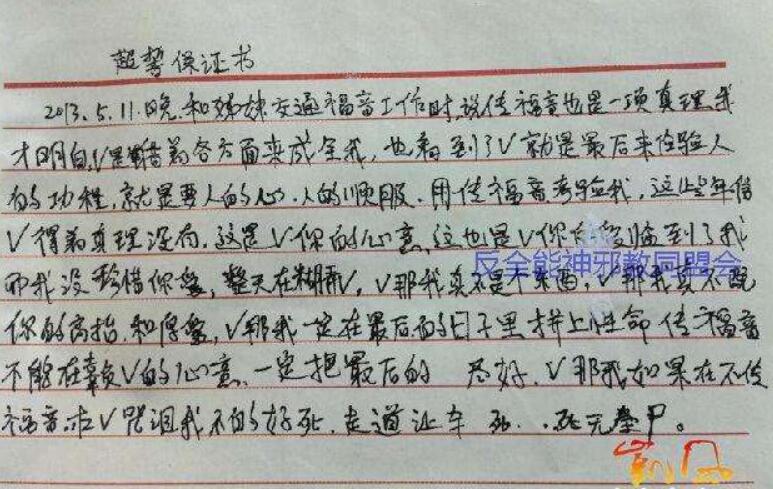 起誓保证书
2013.5.11.晚.和姊妹交通福音工作时,说传福音也是一项真理.我
才明白,V是借着各方面来成全我,也看到了V就是最后来检验人
的功程,就是要人的心.人的顺服.用传福音考验我,这些年信
V得着真理没有,这是V你的心意,这也是V你 临到了我
而我没珍惜你爱,整天在糊弄V,V那我真不是个东西,V那我真不配
你的高抬.和厚爱,V那我一定在最后的日子里拼上性命传福音
不能在辜负V的心意.一定把最后的 尽好.V那我如果在不传
福音.求V咒诅我不的好死.走道让车 死..死无全尸。
反全能神邪教同盟会